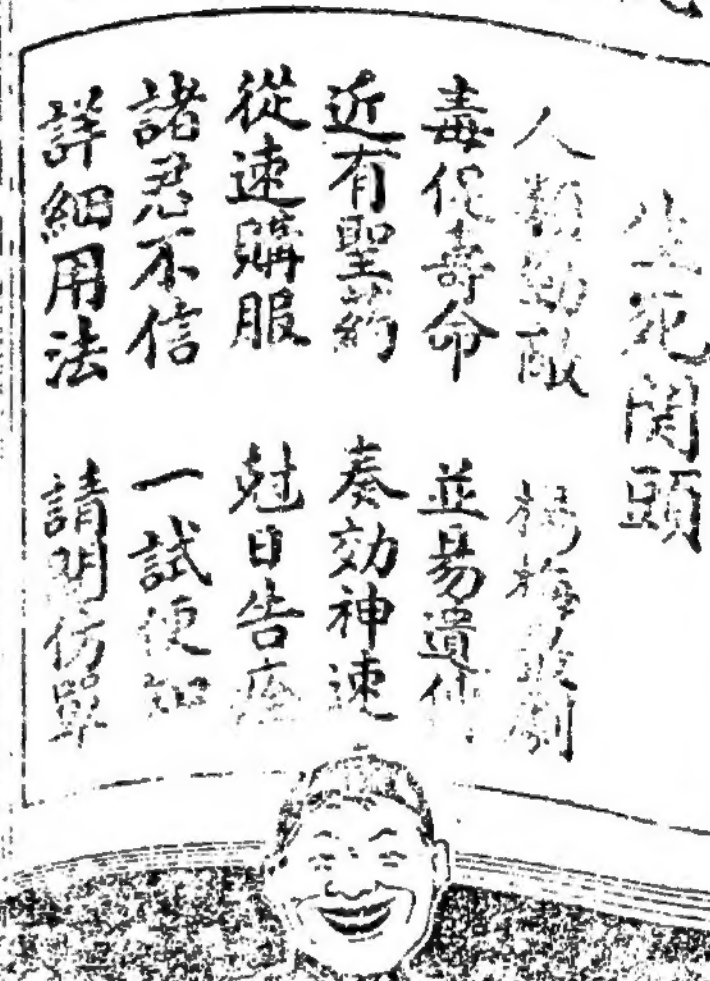 生死関頭
人類勁敵 楊梅最劇
毒促壽命 並易遺傳
近有聖药 奏効神速
從速購服 尅日告痊
諸君不信 一試便知
詳細用法 請閱仿單